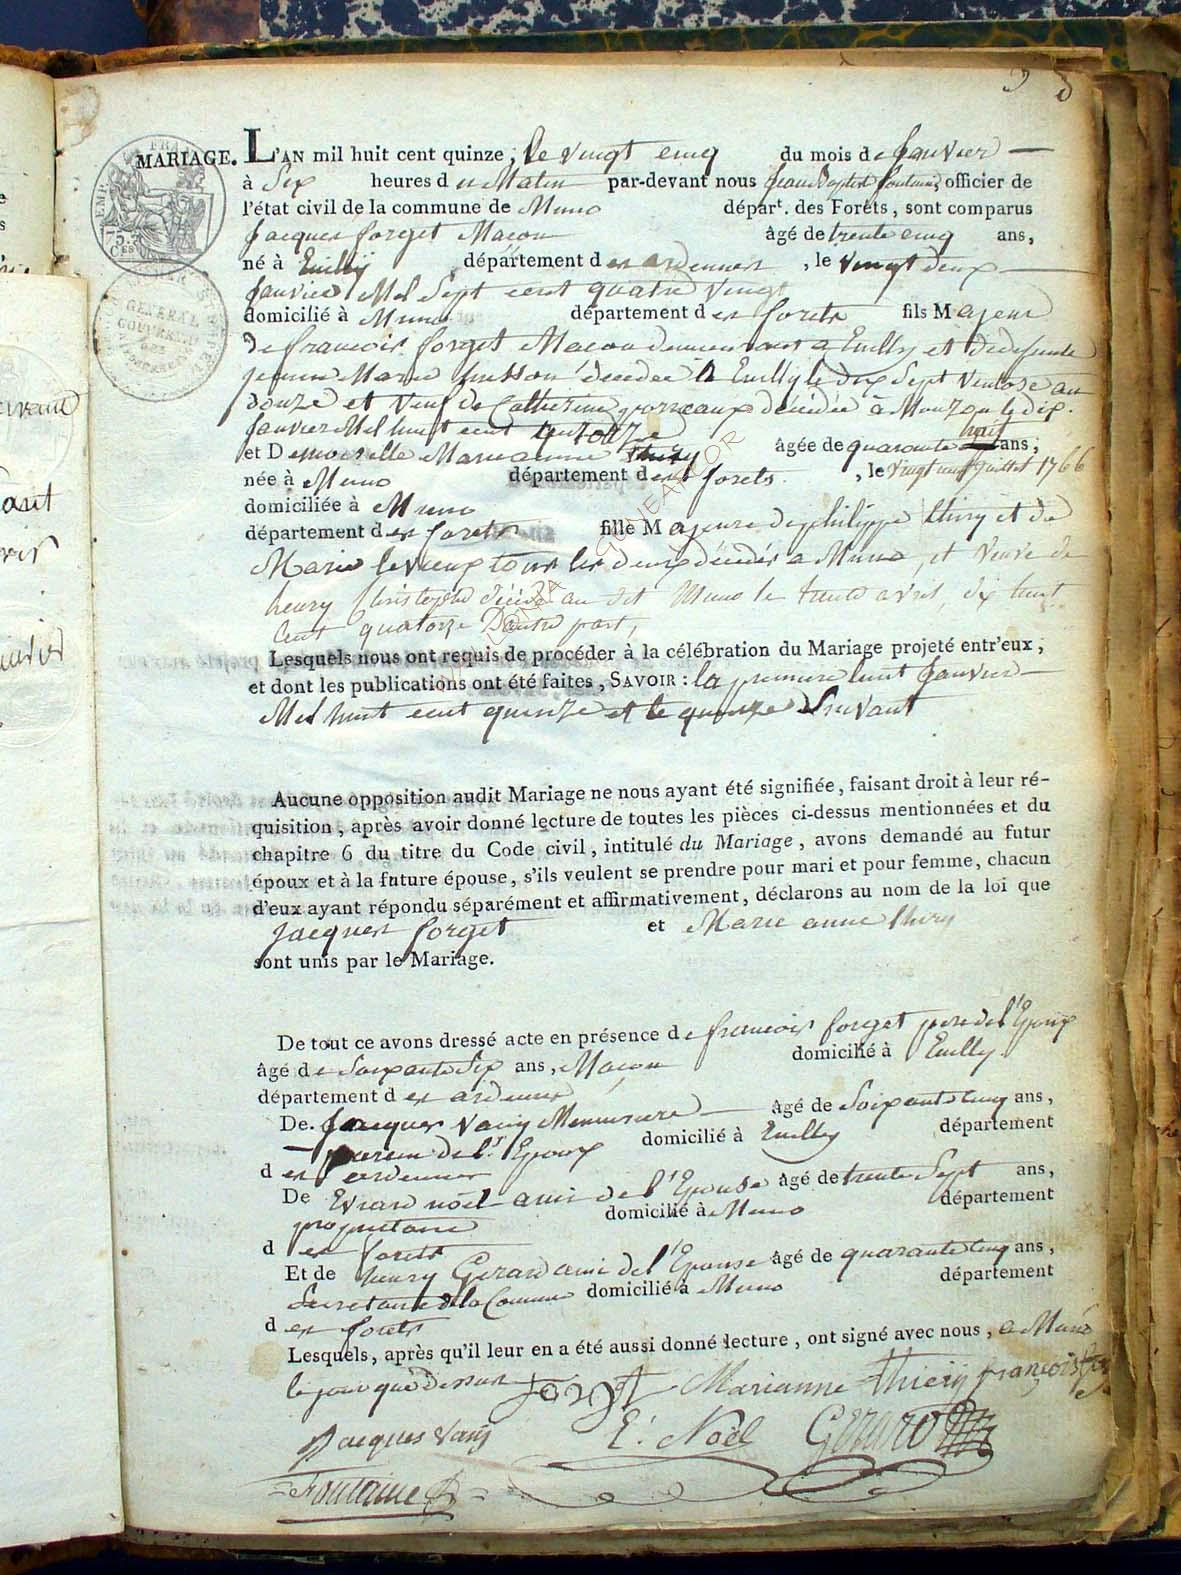 MARIAGE. L'AN mil huit cent quinze, le vingt cinq du mois de Janvier
à Six heures d u Matin par-devant nous Jean Baptist fontaine officier de
l'état civil de la commune de Muno départ. des Forêts, sont comparus
Jacques forget Macon âgé de trente cinq ans,
né à Euilly département des ardennes, le vingt deux
Janvier Mil Sept cent quatre vingt
domicilié à Muno département des forets fils Majeur
de francois forget Macon demeurant a Euilly et de defunte
jeanne Marie husson décédée à Euilly le dix Sept Ventose an
douze et veuf de Catherine décédée à Mouzon le dix
Janvier Mil huit cent quatorze
et Demoiselle Marieanne thiry âgée de quarante huit ans,
née à Muno département des forets, le vingt neuf Juillet 1766
domiciliée à Muno
département des forets fille Majeure de philippe thiry et de
Marie leveux tous les deux décédés a Muno, et Veuve de
henry Christophe décédé au dit Muno le trente avril, dix huit
Cent quatorze D'autre part,
Lesquels nous ont requis de procéder à la célébration du Mariage projeté entr'eux,
et dont les publications ont été faites, SAVOIR: la premiere huit Janvier
Mil huit cent quinze et le quinze Suivant
Aucune opposition audit Mariage ne nous ayant été signifiée, faisant droit à leur ré-
quisition, après avoir donné lecture de toutes les pièces ci-dessus mentionnées et du
chapitre 6 du titre du Code civil, intitulé du Mariage, avons demandé au futur
époux et à la future épouse, s'ils veulent se prendre pour mari et pour femme, chacun
d'eux ayant répondu séparément et affirmativement, déclarons au nom de la loi que
Jacques forget et Marie anne thiry
sont unis par le Mariage.
De tout ce avons dressé acte en présence de francois forget pere de l'Epoux
âgé de Soixante Six ans, Macon domicilié à Euilly
département des ardennes
De Jacques Vany Menuisiere âgé de Soixante cinq ans,
parein de l'Epoux domicilié à Euilly département
des ardennes
De Evrard noël ami de l'Epouse âgé de trente Sept ans,
propriétaire domicilié à Muno département
des forets
Et de henry Gerard ami de l'Epouse âgé de quarante cinq ans,
Secretaire de la Commune domicilié à Muno département
des forets
Lesquels, après qu'il leur en a été aussi donné lecture, ont signé avec nous, a Muno
le jour que dessus forget Marianne thiery françois
Jacques Vany E. Noël Gerard
Fontaine